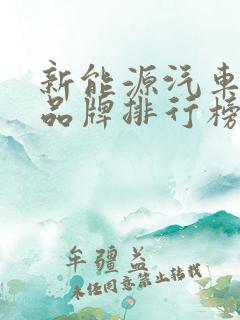 新能源汽车
品牌排行榜
牟疆益
未经同意禁止转载